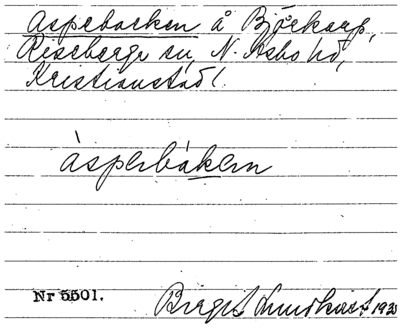 Aspebacken å Björkarp,
Riseberga sn, N. Åsbo hd,
Kristianstad l.
àsperbàkern
Nr 5501.
Birgit Lundkvist 192